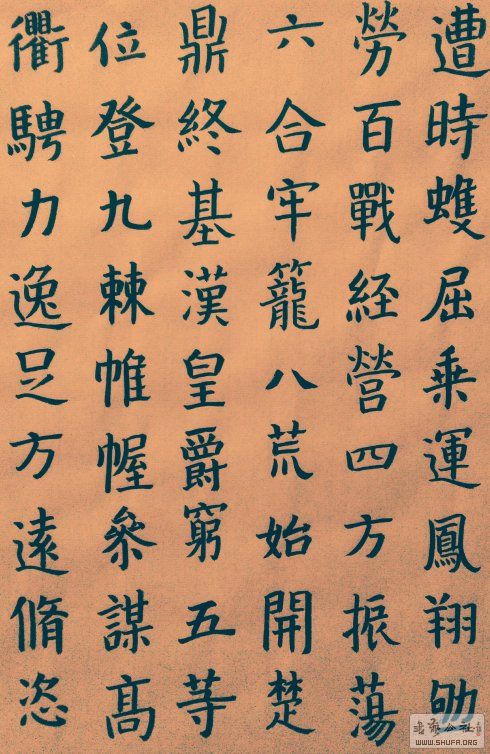 遭時蠖屈乗運鳳翔劬
勞百戰經營四方振蕩
六合牢籠八荒始開楚
鼎終基漢皇爵窮五等
位登九棘帷幄叅謀高
衢騁力逸足方遠脩恣
书法公社
WWW.SHUFA.ORG